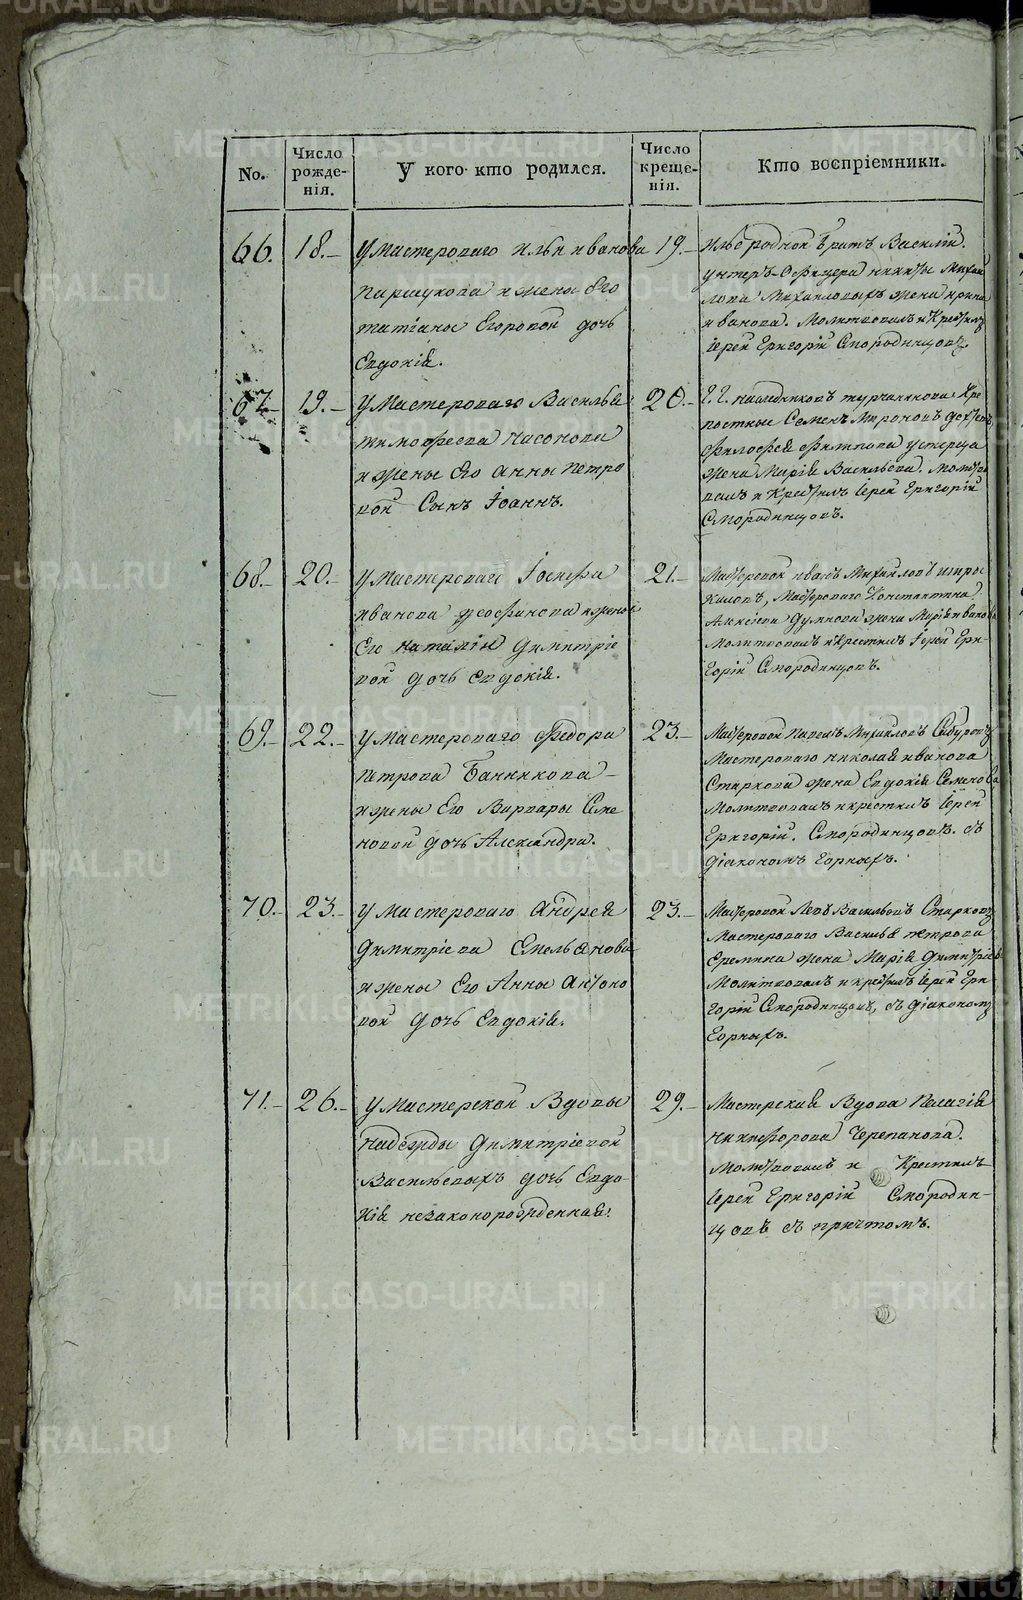 No.
Число рожде-
нія.
У кого кто родился.
Число креще-
нія.
Кто воспріемники.
66.
18.-
У Мастероваго Ильи Иванова
Паршукова и жены Его
Татіаны Егоровой дочь
Евдокія.
19.-
родной братъ Василій.
унтеръ-Офицера Никиты Михай
лова Михаиловыхъ жена Ирина
Иванова. Молитвовалъ и Крестилъ
Іерей Григорій Смородинцовъ.
67.-
19.-
У Мастероваго Василья
Тимофеева Часонова
и жены Его Анны Петро
вой Сынъ Іоаннъ.
20.-
Г. Г. наследниковъ Турчанинова Кре
постные Семенъ Мироновъ
Филипова
жена Марія Васильева. Молитво
валъ и Крестилъ Іерей Григорій
Смородинцовъ.
68.-
20.-
У Мастероваго Іосифа
Иванова Феофанова и жены
Его Наталіи Димитріе
вой дочь Евдокія.
21.-
Мастеровой Иванъ Михайловъ
Мастероваго Константина
Алексіева Думнова жена Марія Иванова
Молитвовалъ и Крестилъ Іерей Гри-
горій Смородинцовъ.
69.-
22.-
У Мастероваго Федора
Петрова Банникова -
и жены Его Варвары Семе
новой дочь Александра.
23.-
Мастеровой Павелъ Михайловъ Сабуровъ
Мастероваго Николая Иванова
Старкова жена Евдокія Семенова
Молитвовалъ и крестилъ Іерей
Григорій. Смородинцовъ. съ
діакономъ Горныхъ.
70.-
23.-
У Мастероваго Андрея
Димитріева Емельянова
и жены Его Анны Антоно
вой дочь Евдокія.
23.-
Мастеровой Левъ Васильевъ Старковъ
Мастероваго Василья Петрова
Еремина жена Марія Димитріева
Молитвовалъ и крестилъ Іерей Гри
горій Смородинцовъ, съ діакономъ
Горныхъ.
71.-
26.-
У Мастерской Вдовы
Надежды Димитріевой
Васильевыхъ дочь Евдо-
кія незаконорожденная.
29.-
Мастерская Вдова Пелагія
Никифорова Черепанова.
Молитвовалъ и Крестилъ
Іерей Григорій Смородин-
цовъ съ причтомъ.
METRIKI.GASO-URAL.RU